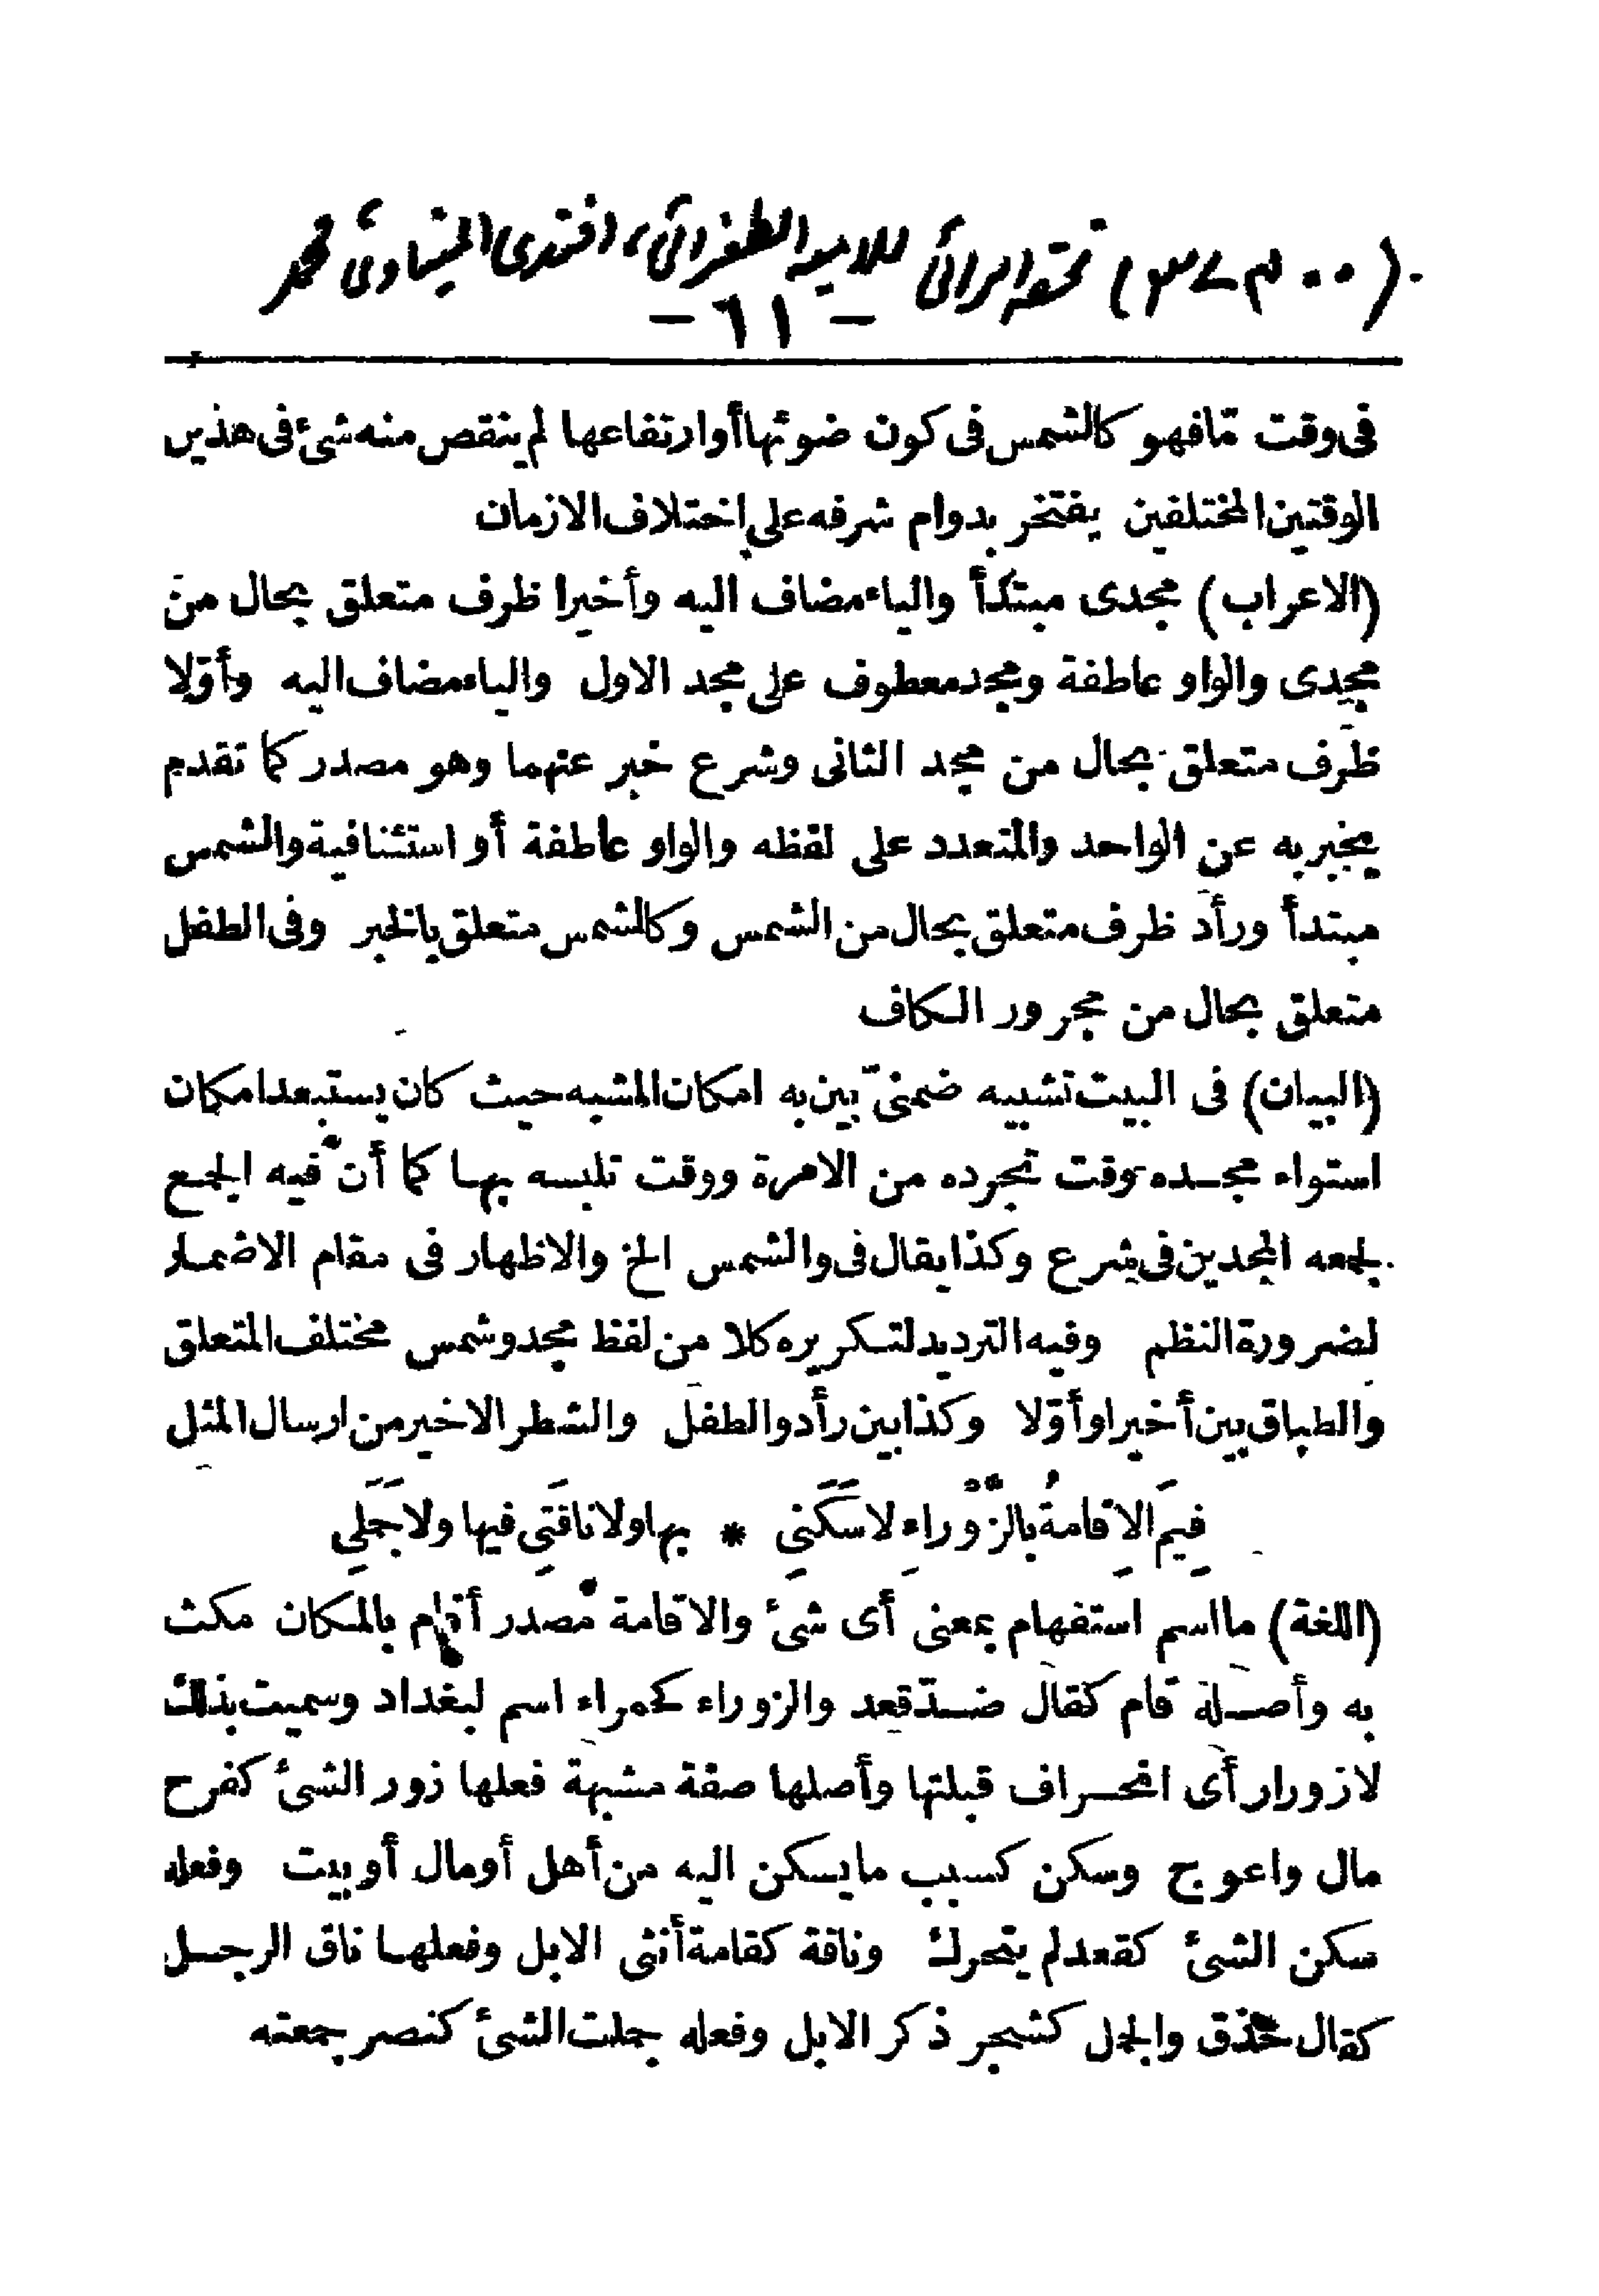 تحفة الرائى للامية الطغرائى، افندى المنياوى محمد
— ٦١ —
فى وقت مّا فهو كالشمس فى كون ضوئها أو ارتفاعها لم ينقص منه شئ فى هذين
الوقتين المختلفين يفتخر بدوام شرفه على اختلاف الازمان
(الاعراب) مجدى مبتدأ والياء مضاف اليه وأخيرا ظرف متعلق بحال من
مجدى والواو عاطفة ومجد معطوف على مجد الاول والياء مضاف اليه وأوّلا
ظرف متعلق بحال من مجد الثانى وشرع خبر عنهما وهو مصدر كما تقدم
يخبر به عن الواحد والمتعدد على لفظه والواو عاطفة أو استئنافية والشمس
مبتدأ ورأد ظرف متعلق بحال من الشمس وكالشمس متعلق بالخبر وفى الطفل
متعلق بحال من مجرور الكاف
(البيان) فى البيت تشبيه ضمنىّ بين به امكان المشبه حيث كان يستبعد امكان
استواء مجده وقت تجرده من الامرة ووقت تلبسه بها كما أنّ فيه الجمع
لجمعه المجدين فى شرع وكذا يقال فى والشمس الخ والاظهار فى مقام الاضمار
لضرورة النظم وفيه الترديد لتكريره كلا من لفظ مجد وشمس مختلف المتعلق
والطباق بين أخيرا وأوّلا وكذا بين رأد والطفل والشطر الاخير من ارسال المثل
فِيمَ الاِقامةُ بالزَّوْراءِ لا سَكَنِى * بها ولا ناقَتِى فيها ولا جَمَلِى
(اللغة) ما اسم استفهام بمعنى أى شئ والاقامة مصدر أقام بالمكان مكث
به وأصله قام كقال ضدّ قعد والزوراء كحمراء اسم لبغداد وسميت بذلك
لازورار أى انحراف قبلتها وأصلها صفة مشبهة فعلها زور الشئ كفرح
مال واعوج وسكن كسبب ما يسكن اليه من أهل أو مال أو بيت وفعله
سكن الشئ كقعد لم يتحرك وناقة كقامة أنثى الابل وفعلها ناق الرجل
كقال حذق والجمل كشجر ذكر الابل وفعله جملت الشئ كنصر جمعته